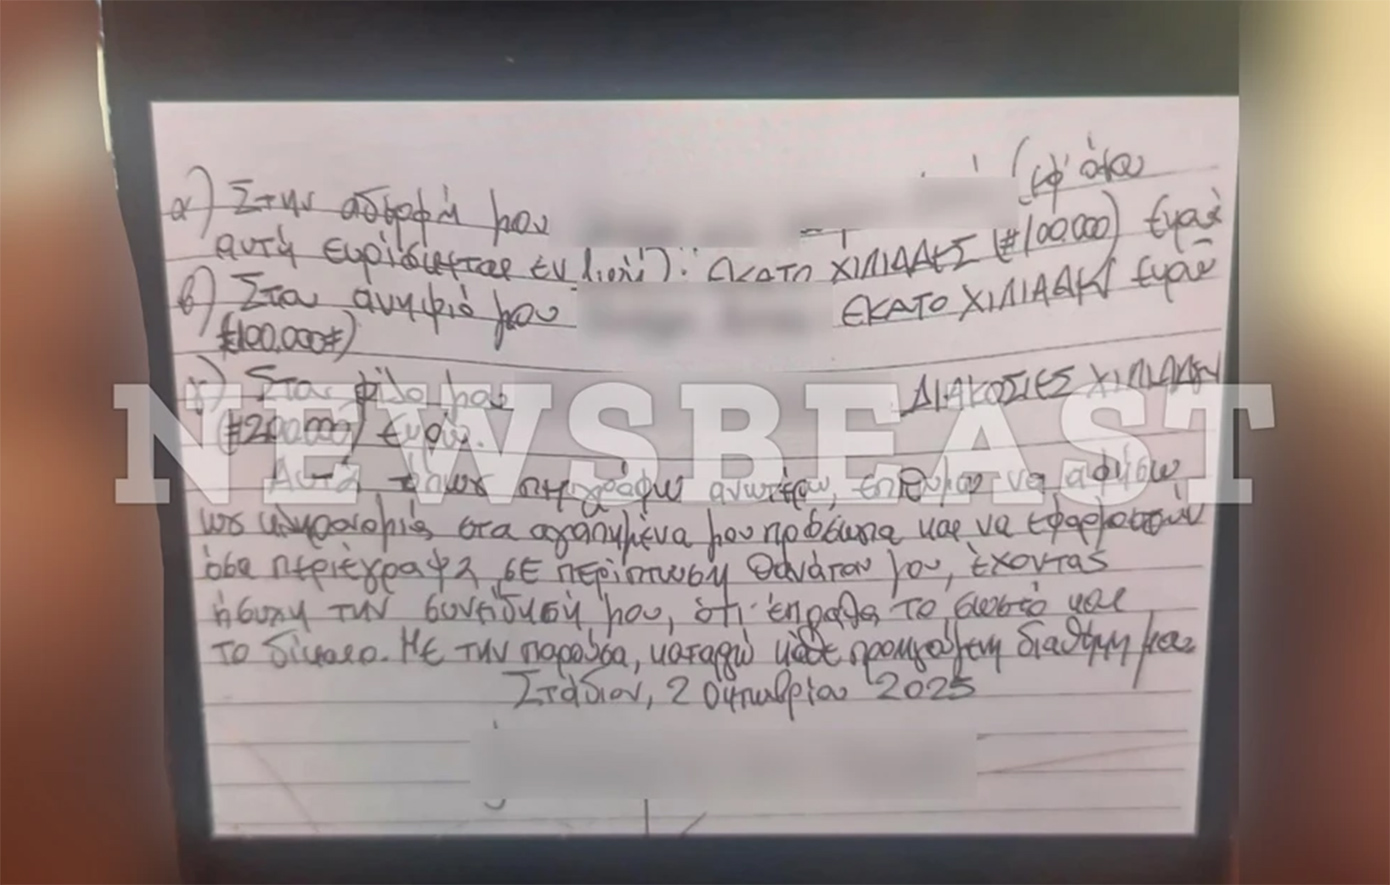 (εφ' όσον
α) Στην αδερφή μου
αυτή ευρίσκεται εν ζωή): ΕΚΑΤΟ ΧΙΛΙΑΔΕΣ (#100.000) Ευρώ
β) Στον ανηψιό μου ΕΚΑΤΟ ΧΙΛΙΑΔΕΣ Ευρώ
(#100.000#)
γ) Στον φίλο μου ΔΙΑΚΟΣΙΕΣ ΧΙΛΙΑΔΕΣ
(#200.000) Ευρώ.
NEWSBEAST
Αυτά όπως περιγράφω ανωτέρω, επιθυμώ να αφήσω
ως κληρονομιά στα αγαπημένα μου πρόσωπα και να εφαρμοστούν
όσα περιέγραψα σε περίπτωση θανάτου μου, έχοντας
ήσυχη την συνείδησή μου, ότι έπραξα το σωστό και
το δίκαιο. Με την παρούσα, καταργώ κάθε προηγούμενη διαθήκη μου.
Στάδιον, 2 Οκτωβρίου 2025